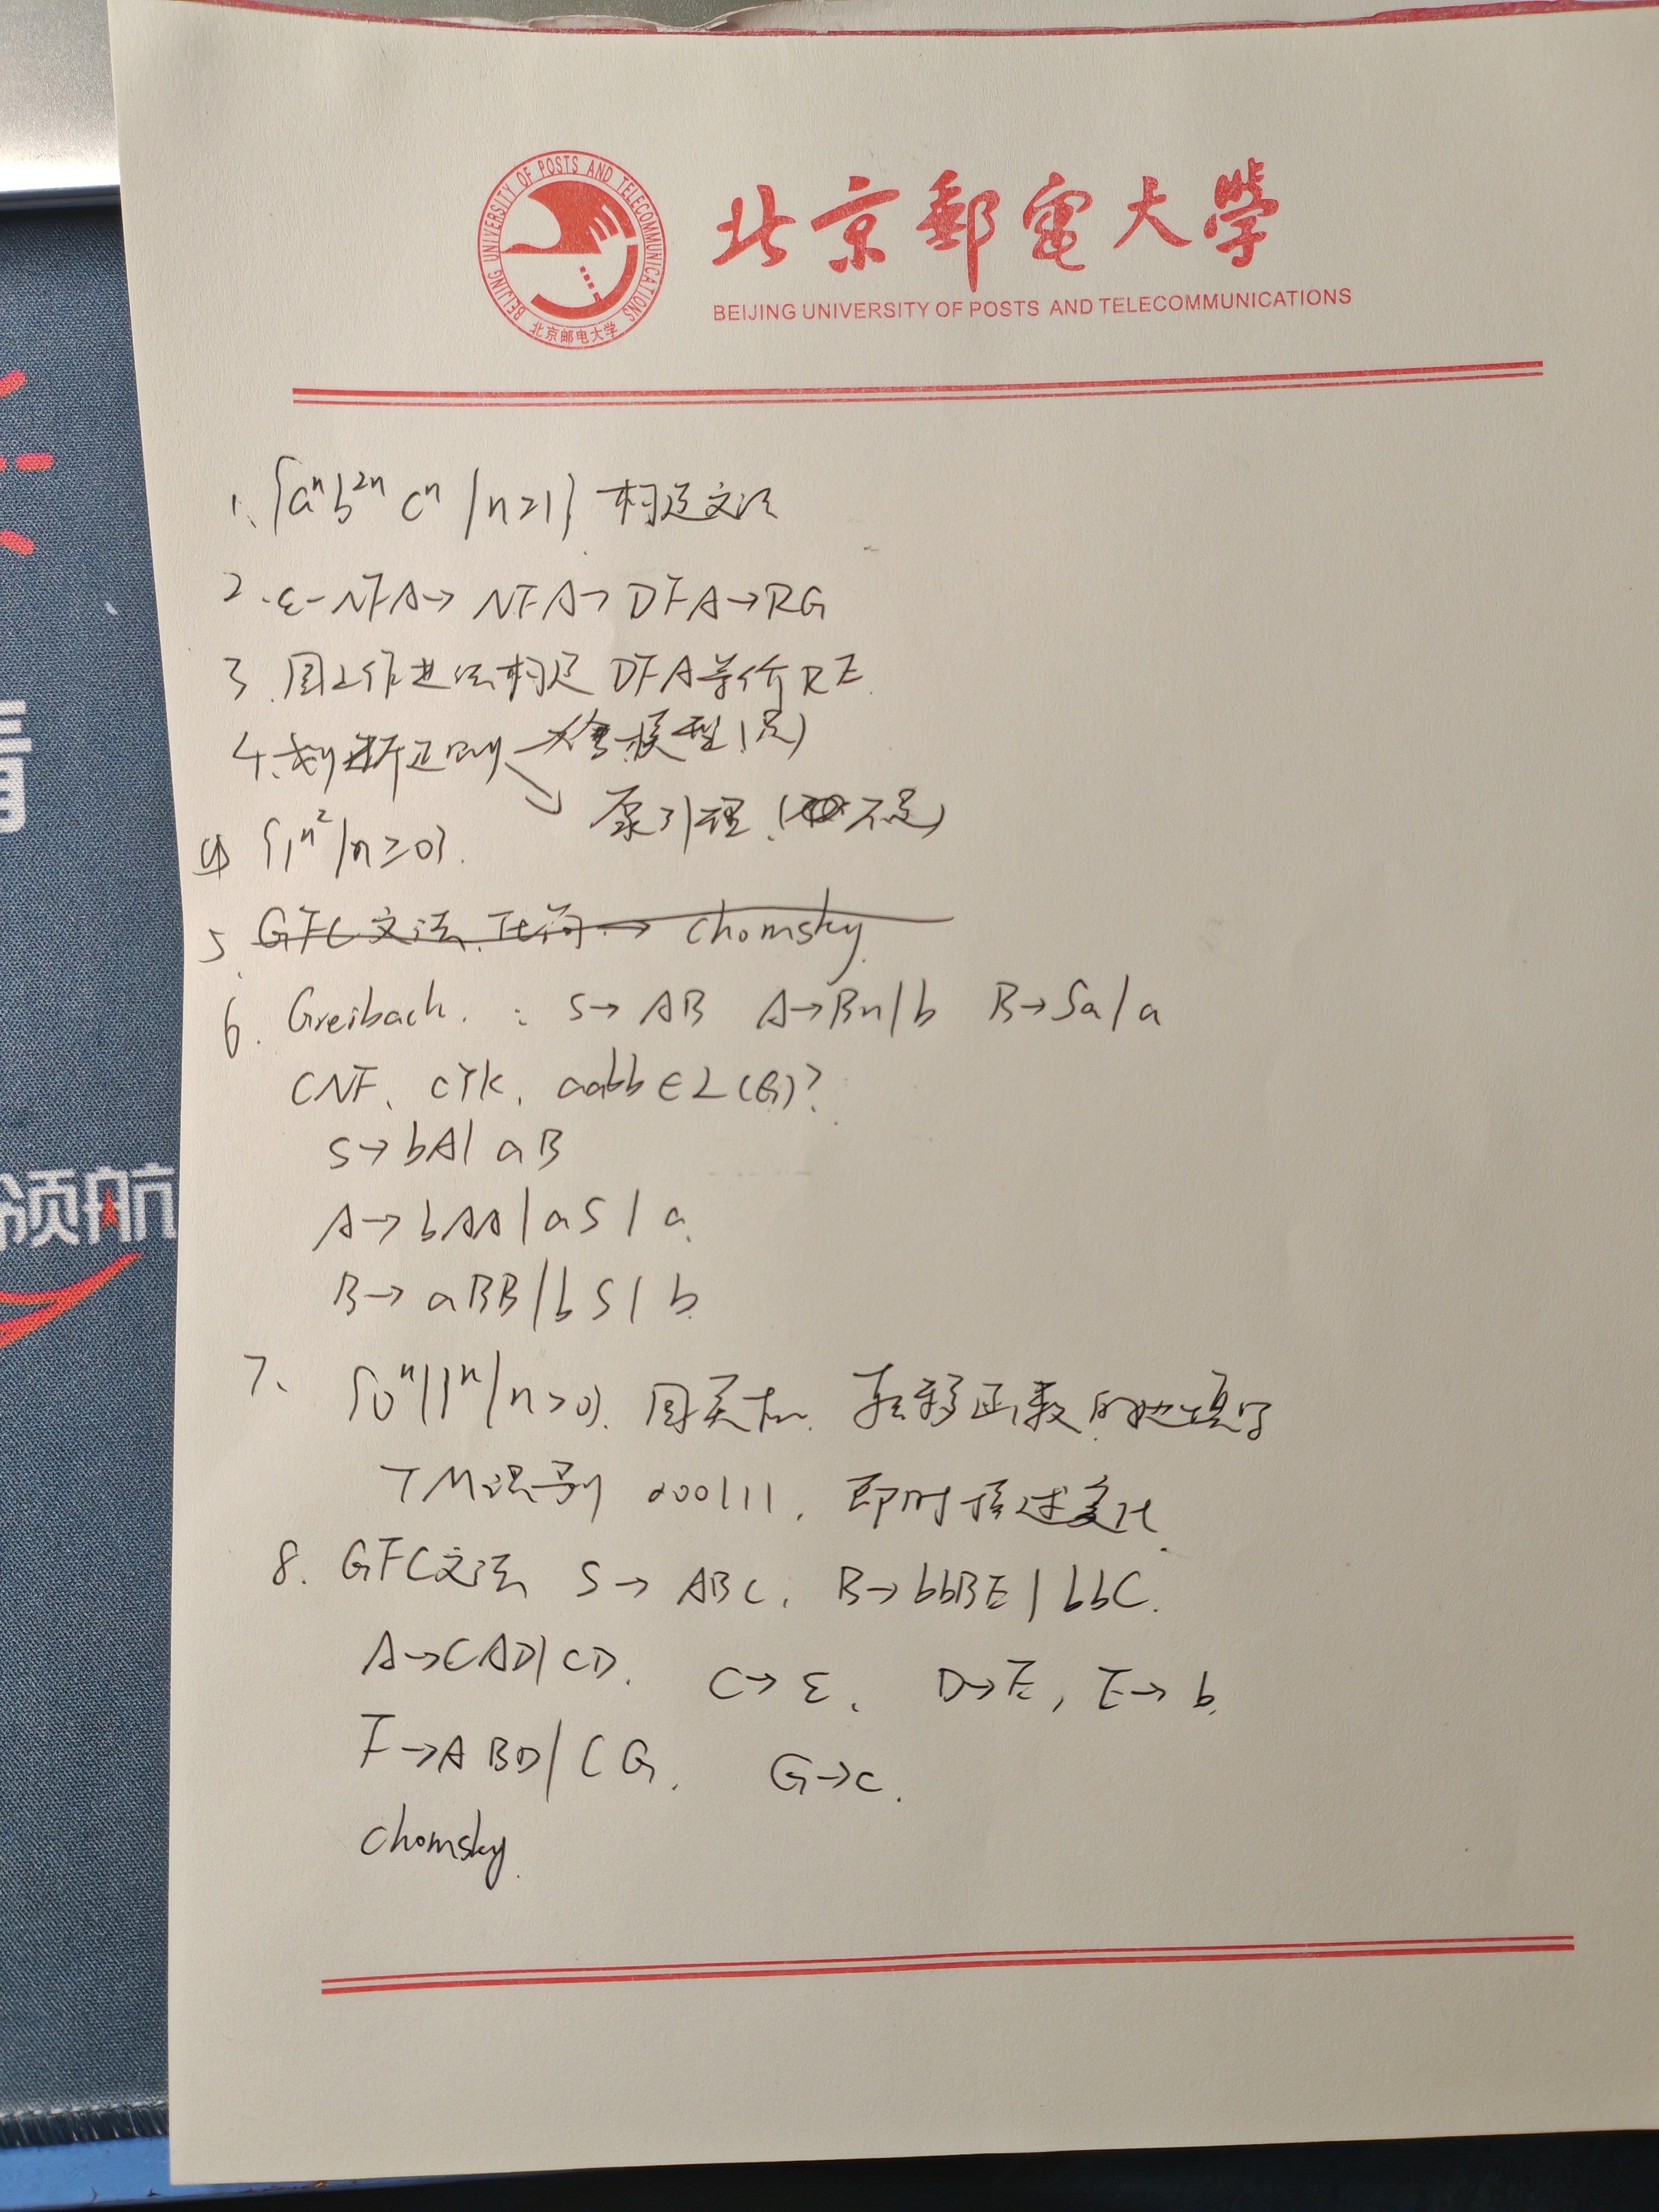 BEIJING UNIVERSITY OF POSTS AND TELECOMMUNICATIONS
北京邮电大学
北京郵電大學
BEIJING UNIVERSITY OF POSTS AND TELECOMMUNICATIONS
1、{aⁿb²ⁿcⁿ|n≥1} 构造文法
2. ε-NFA→ NFA→ DFA→RG
3. 图上作业法构造 DFA等价RE.
4. 判断正则 模型(是)
泵引理(不是)
{1ⁿ²|n≥0}.
5. GFC文法 chomsky.
6. Greibach. : S→ AB A→Bn|b B→Sa|a
CNF、CYK, aabb∈L(G)?
S→ bA| aB
A→ bAA|aS|a
B→ aBB|bS|b
7、 {0ⁿ11ⁿ|n>0}. 图灵机. 转移函数
TM识别 000111, 即时描述变化.
8. GFC文法 S→ ABC, B→bbBE|bbC.
A→CAD|CD. C→ε, D→E, E→b.
F→ABD|CG. G→c.
chomsky.
领航